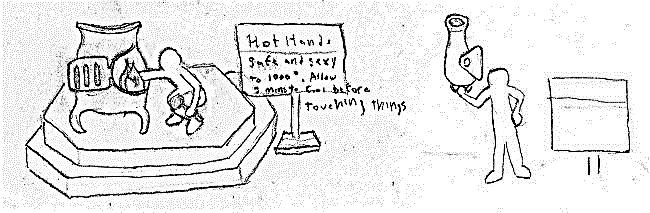 Hot Hands
Safe and sexy
to 1000°. Allow
3 minute cool before
touching things